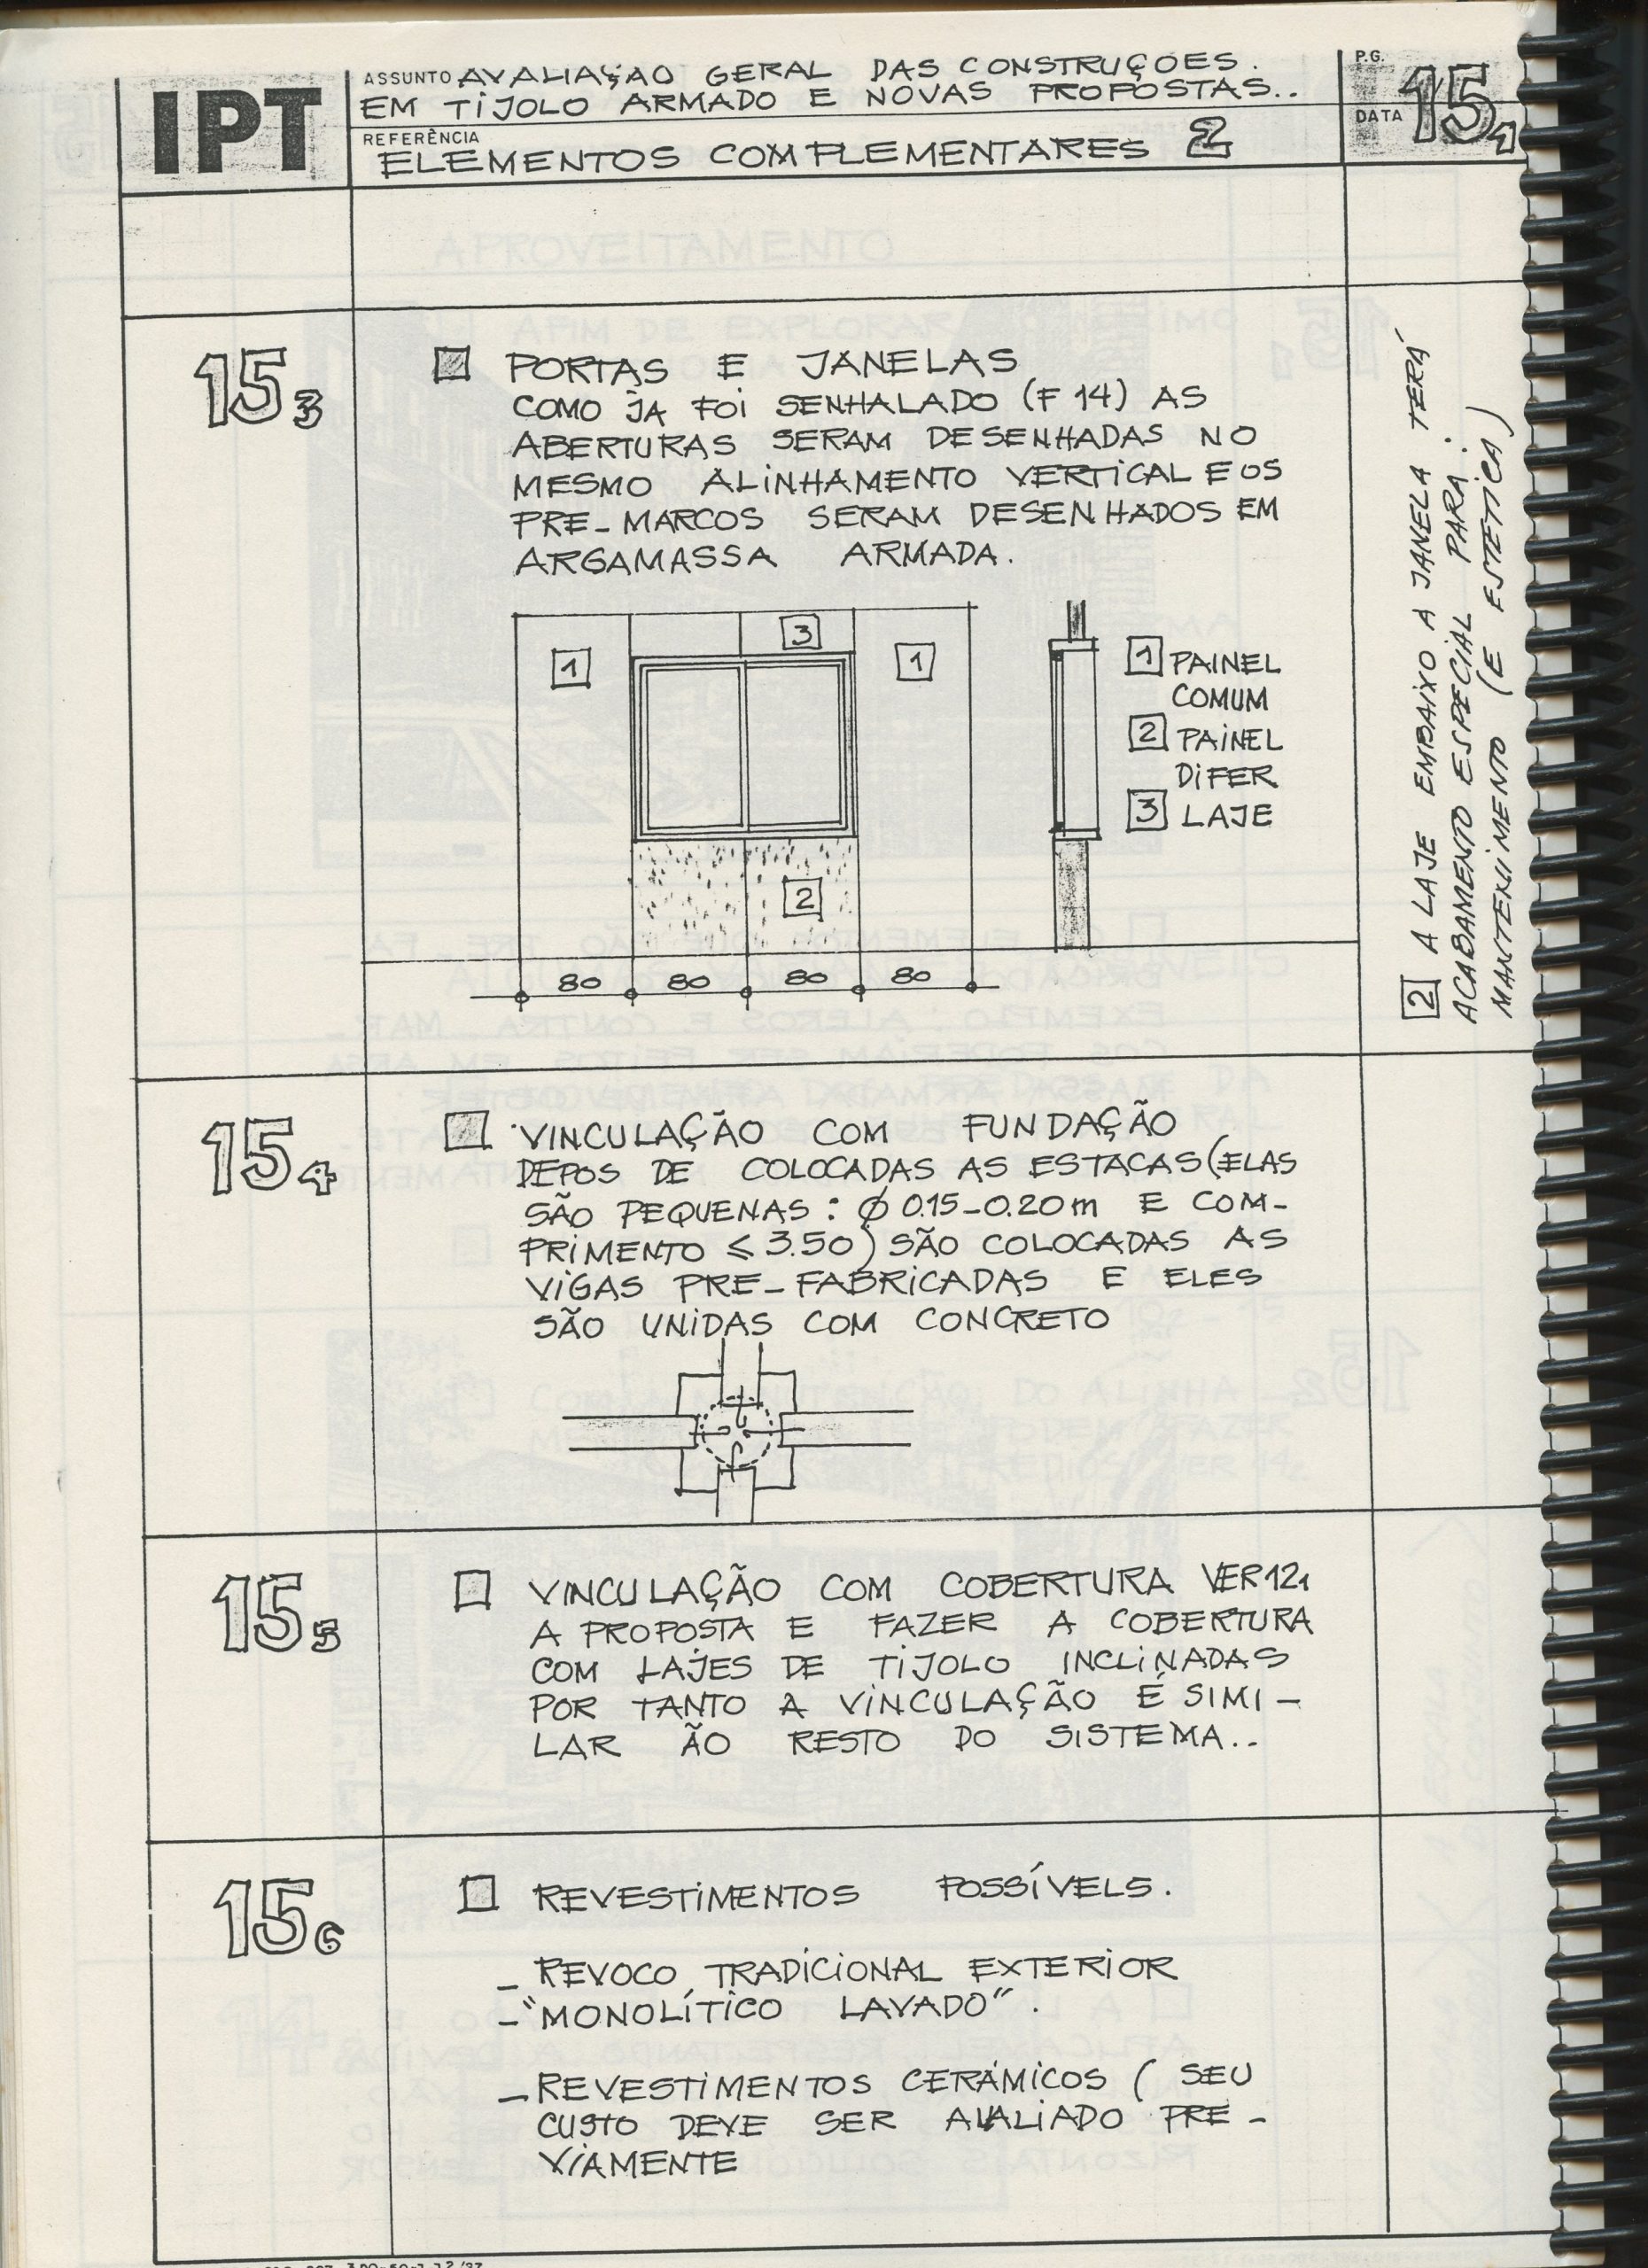 IPT
ASSUNTO AVALIAÇAO GERAL DAS CONSTRUÇOES.
EM TIJOLO ARMADO E NOVAS PROPOSTAS..
REFERÊNCIA
ELEMENTOS COMPLEMENTARES 2
PG.
DATA
15 1
15 3
PORTAS E JANELAS
COMO JA FOI SENHALADO (F 14) AS
ABERTURAS SERAM DESENHADAS NO
MESMO ALINHAMENTO VERTICAL E OS
PRE-MARCOS SERAM DESENHADOS EM
ARGAMASSA ARMADA.
1
3
1
2
80 80 80 80
1 PAINEL
COMUM
2 PAINEL
DIFER
3 LAJE
2 A LAJE EMBAIXO A JANELA TERÁ
ACABAMENTO ESPECIAL PARA.
MANTENIMENTO (E ESTETICA)
15 4
VINCULAÇÃO COM FUNDAÇÃO
DEPOS DE COLOCADAS AS ESTACAS (ELAS
SÃO PEQUENAS: Ø 0.15-0.20m E COM-
PRIMENTO ≤ 3.50) SÃO COLOCADAS AS
VIGAS PRE-FABRICADAS E ELES
SÃO UNIDAS COM CONCRETO
15 5
VINCULAÇÃO COM COBERTURA VER 12 1
A PROPOSTA E FAZER A COBERTURA
COM LAJES DE TIJOLO INCLINADAS
POR TANTO A VINCULAÇÃO É SIMI-
LAR ÃO RESTO DO SISTEMA..
15 6
REVESTIMENTOS POSSÍVELS.
- REVOCO TRADICIONAL EXTERIOR
- "MONOLÍTICO LAVADO".
- REVESTIMENTOS CERÁMICOS (SEU
CUSTO DEVE SER AVALIADO PRE-
VIAMENTE